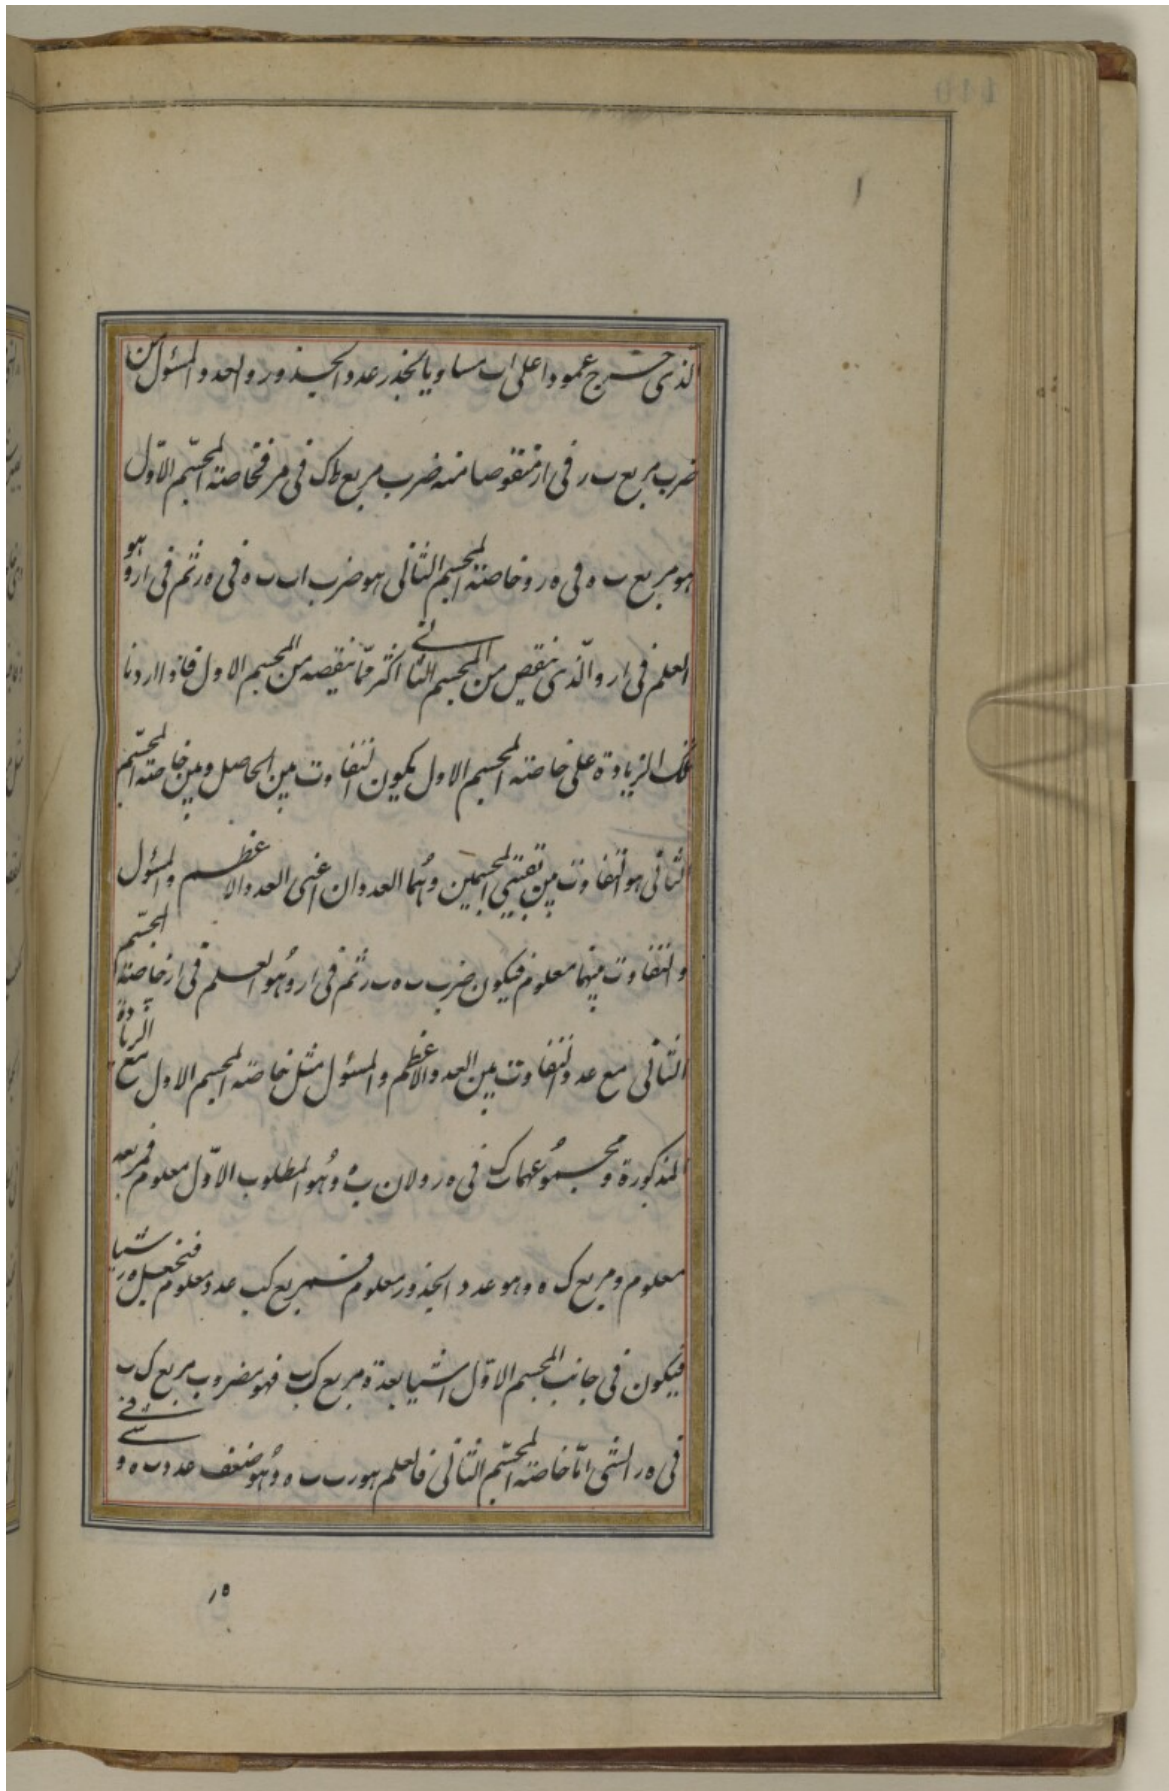 الذى خرج عمودا على اب مساويا لجذر عدد الجذور والعدد المسؤل من
ضرب مربع ب ر فى ار منقوصا منه ضرب مربع ك فى مر فخاصة المجسّم الاوّل
هو مربع ب ه فى ه ر وخاصة المجسم الثانى هو ضرب ب ب ه فى ه ر ثم فى ار وهو
العلم فى ار والّذى ينقص من المجسم الثانى اكثر ممّا ينقصه من المجسم الاول فاذا زدنا
تلك الزيادة على خاصة المجسم الاول يكون التفاوت بين الحاصل وبين خاصة المجسّم
الثانى هو التفاوت بين بقيتي المجسمين وهُما العددان اعنى العدد الاعظم والمسؤل
والتفاوت بينهما معلوم فيكون ضرب ب ه ب ر ثم فى ار وهُو العلم فى ار خاصة المجسّم
الثانى مع عدد التفاوت بين العدد الاعظم والمسؤل مثل خاصة المجسم الاول مع الزيادة
المذكورة ومجموُعهما ك فى ه ر ولان ب ه وهُو المطلوب الاوّل معلوم فمربعه
معلوم ومربع ك ه وهو عدد الجذور معلوم فمربع ك ب عدد معلوم فنجعل ه ر شيا
فيكون فى جانب المجسم الاوّل اشيا بعدة مربع ك ب فهو مضروب مربع ك ب
فى ه ر الشى امّا خاصة المجسّم الثانى فالعلم هو ر ب ب ه وهُو ضعف عدد ب ه و شى فى
ه ر